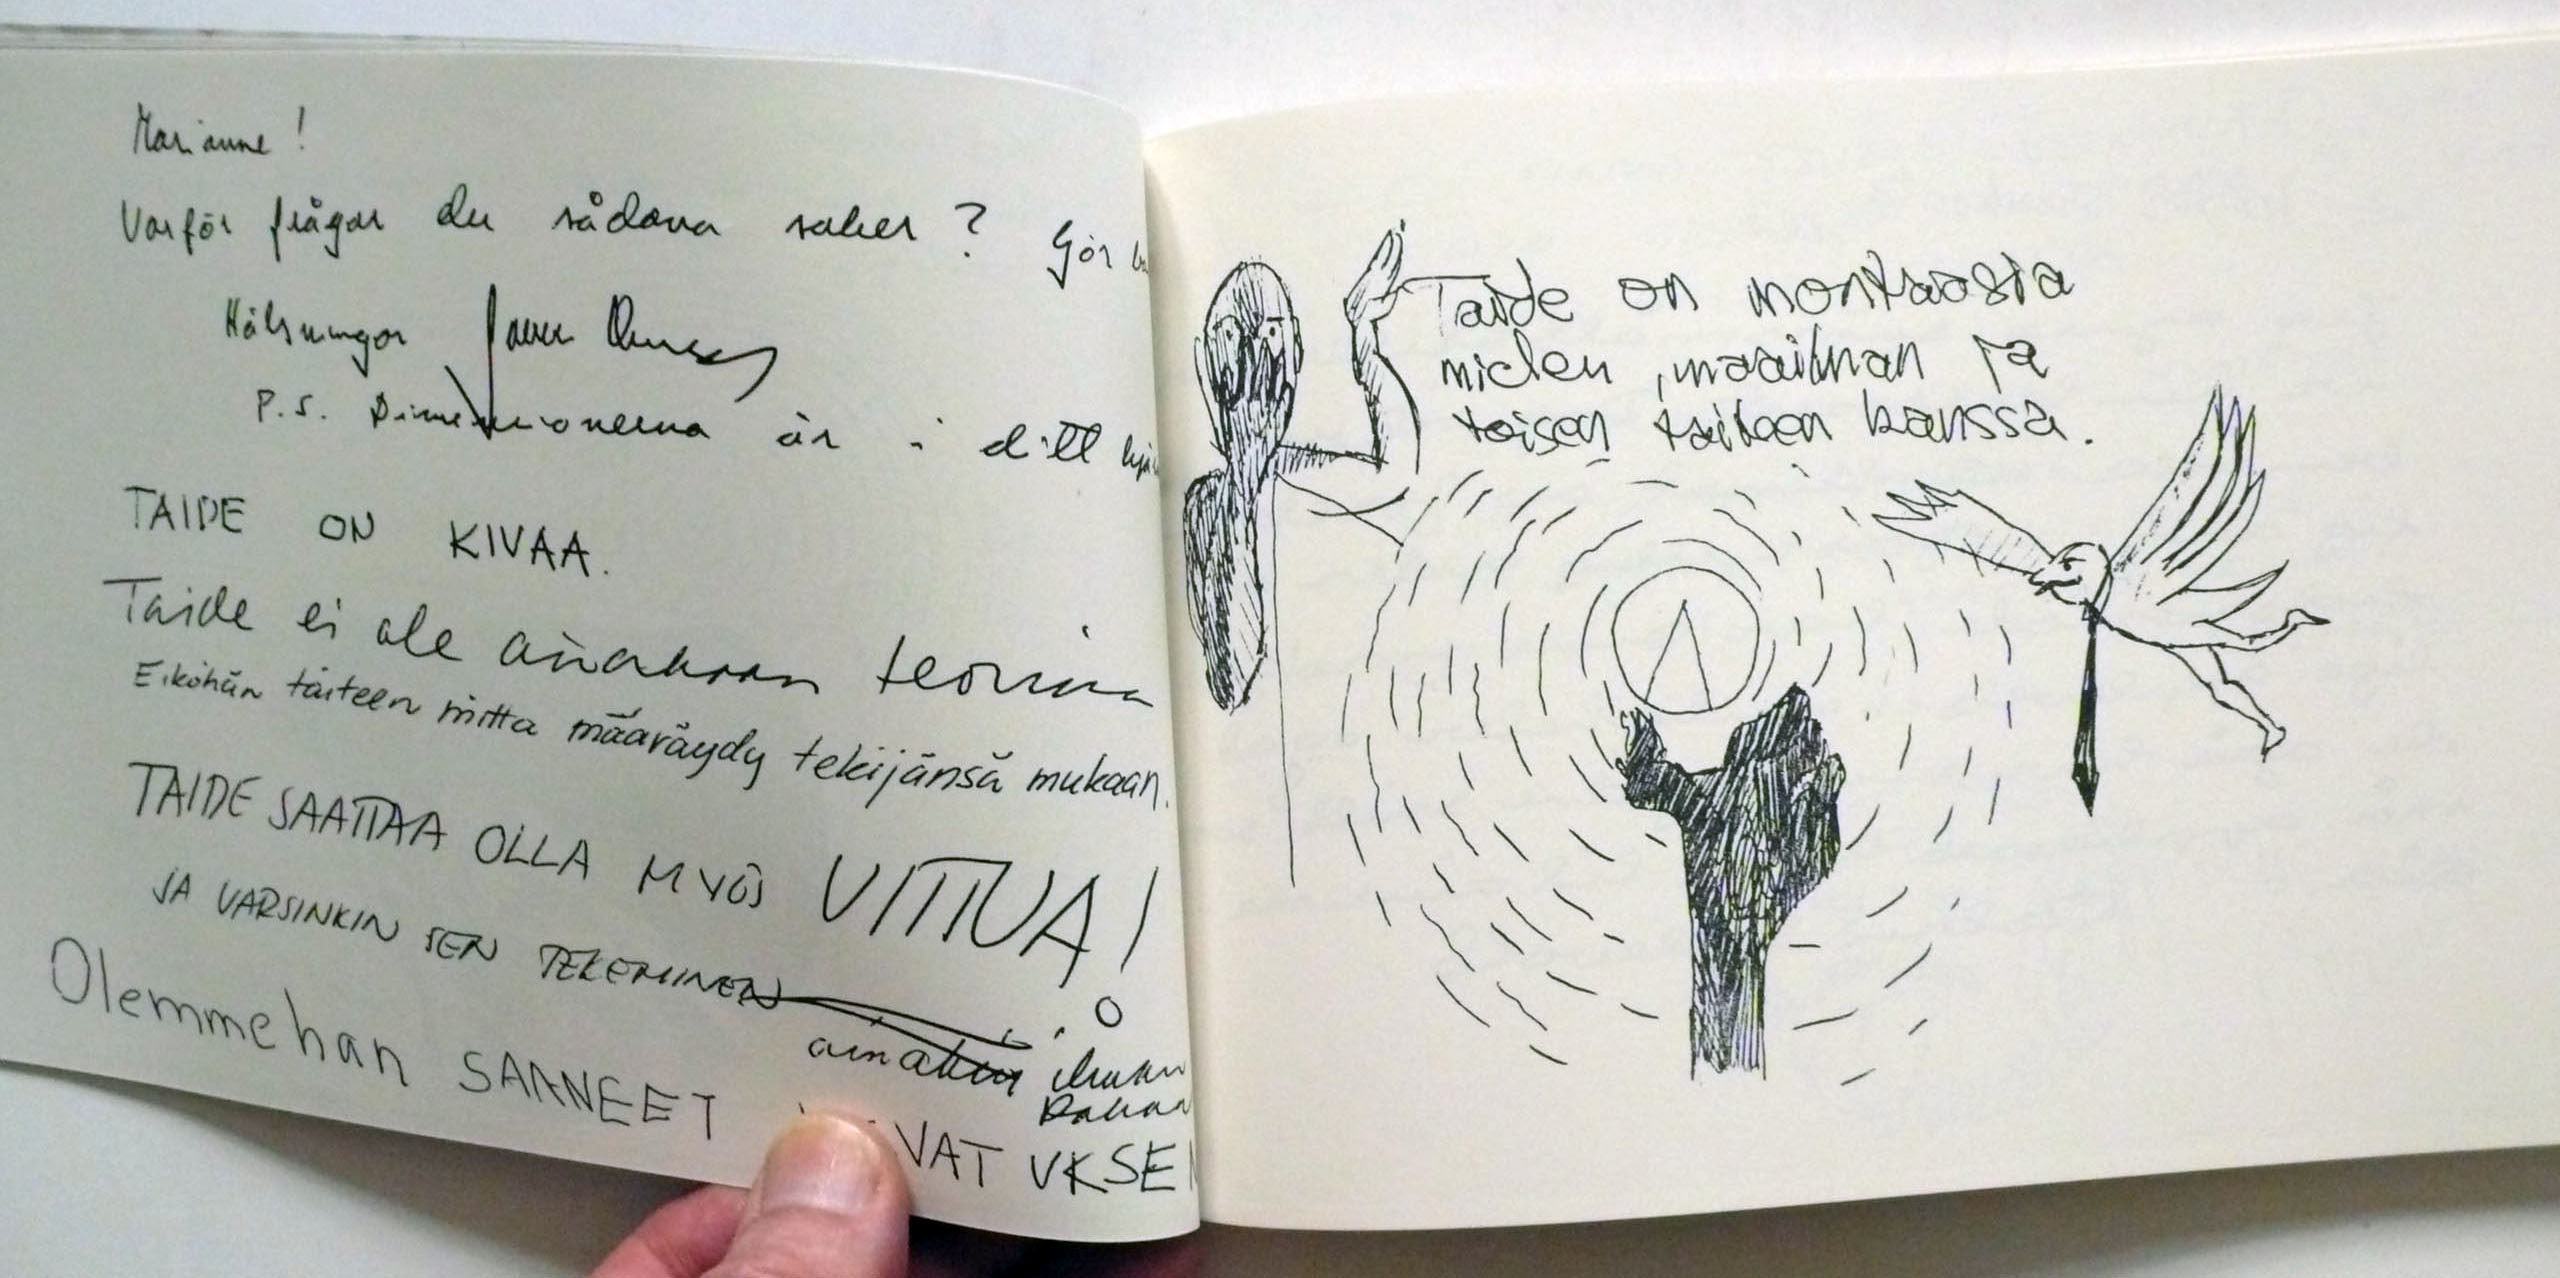 Marianne!
Varför frågar du sådana saker? Gör
Hälsningar
P.S. Dimensionerna är i ditt
TAIDE ON KIVAA.
Taide ei ole ainakaan teoriaa
Eiköhän taiteen mitta määräydy tekijänsä mukaan.
TAIDE SAATTAA OLLA MYÖS VITTUA!
JA VARSINKIN SEN TEKEMINEN
ainakin ilman
rahaa
Olemmehan SAANEET VAT UKSE
Taide on montaasia
mielen, maailman ja
toisen taiteen kanssa.